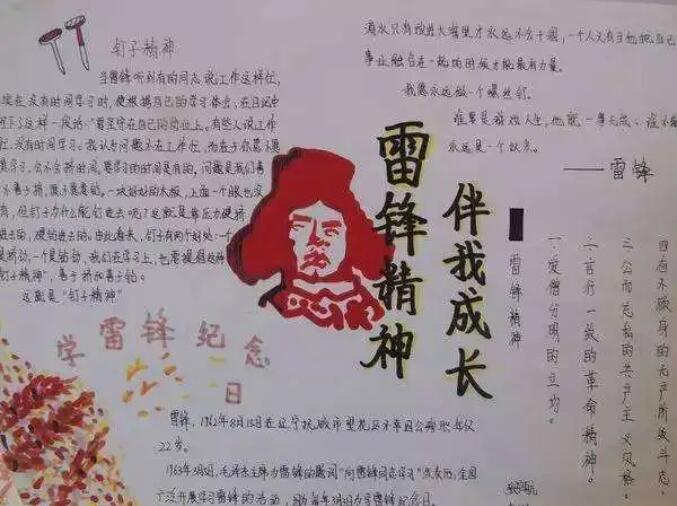 钉子精神
当雷锋听到有的同志说工作这样忙,
实在没有时间学习时,便根据自己的学习体会,在日记中
写下了这样一段话:"要坚守在自己的岗位上。有些人说工作
忙,没有时间学习。我认为问题不在工作忙,而在于你愿不愿
意学习,会不会挤时间。要学习的时间是有的,问题是我们善
不善于挤,愿不愿意钻。一块好好的木板,上面一个眼也没
有,但钉子为什么能钉进去呢?这就是靠压力硬挤
进去的,硬钻进去的。由此看来,钉子有两个好处:一个
是挤劲,一个是钻劲,我们在学习上,也要提倡这种
"钉子精神",善于挤和善于钻。
这就是"钉子精神"
学雷锋纪念
日
滴水只有放进大海里才永远不会干涸,一个人只有当他把自己
事业融合在一起的时候才能最有力量。
我愿永远做一个螺丝钉。
谁要是游戏人生,他就一事无成、谁不能
永远是一个奴隶。
——雷锋
雷锋精神
伴我成长
雷锋精神
一、爱憎分明的立场。
二、言行一致的革命精神。
三、公而忘私的共产主义风格。
四、奋不顾身的无产阶级斗志。
雷锋,1962年8月15日在辽宁抚顺市望花区
22岁。
1963年3月5日,毛泽东主席为雷锋的题词"向雷锋同志学习"发表后,全国
广泛开展学习雷锋的活动,